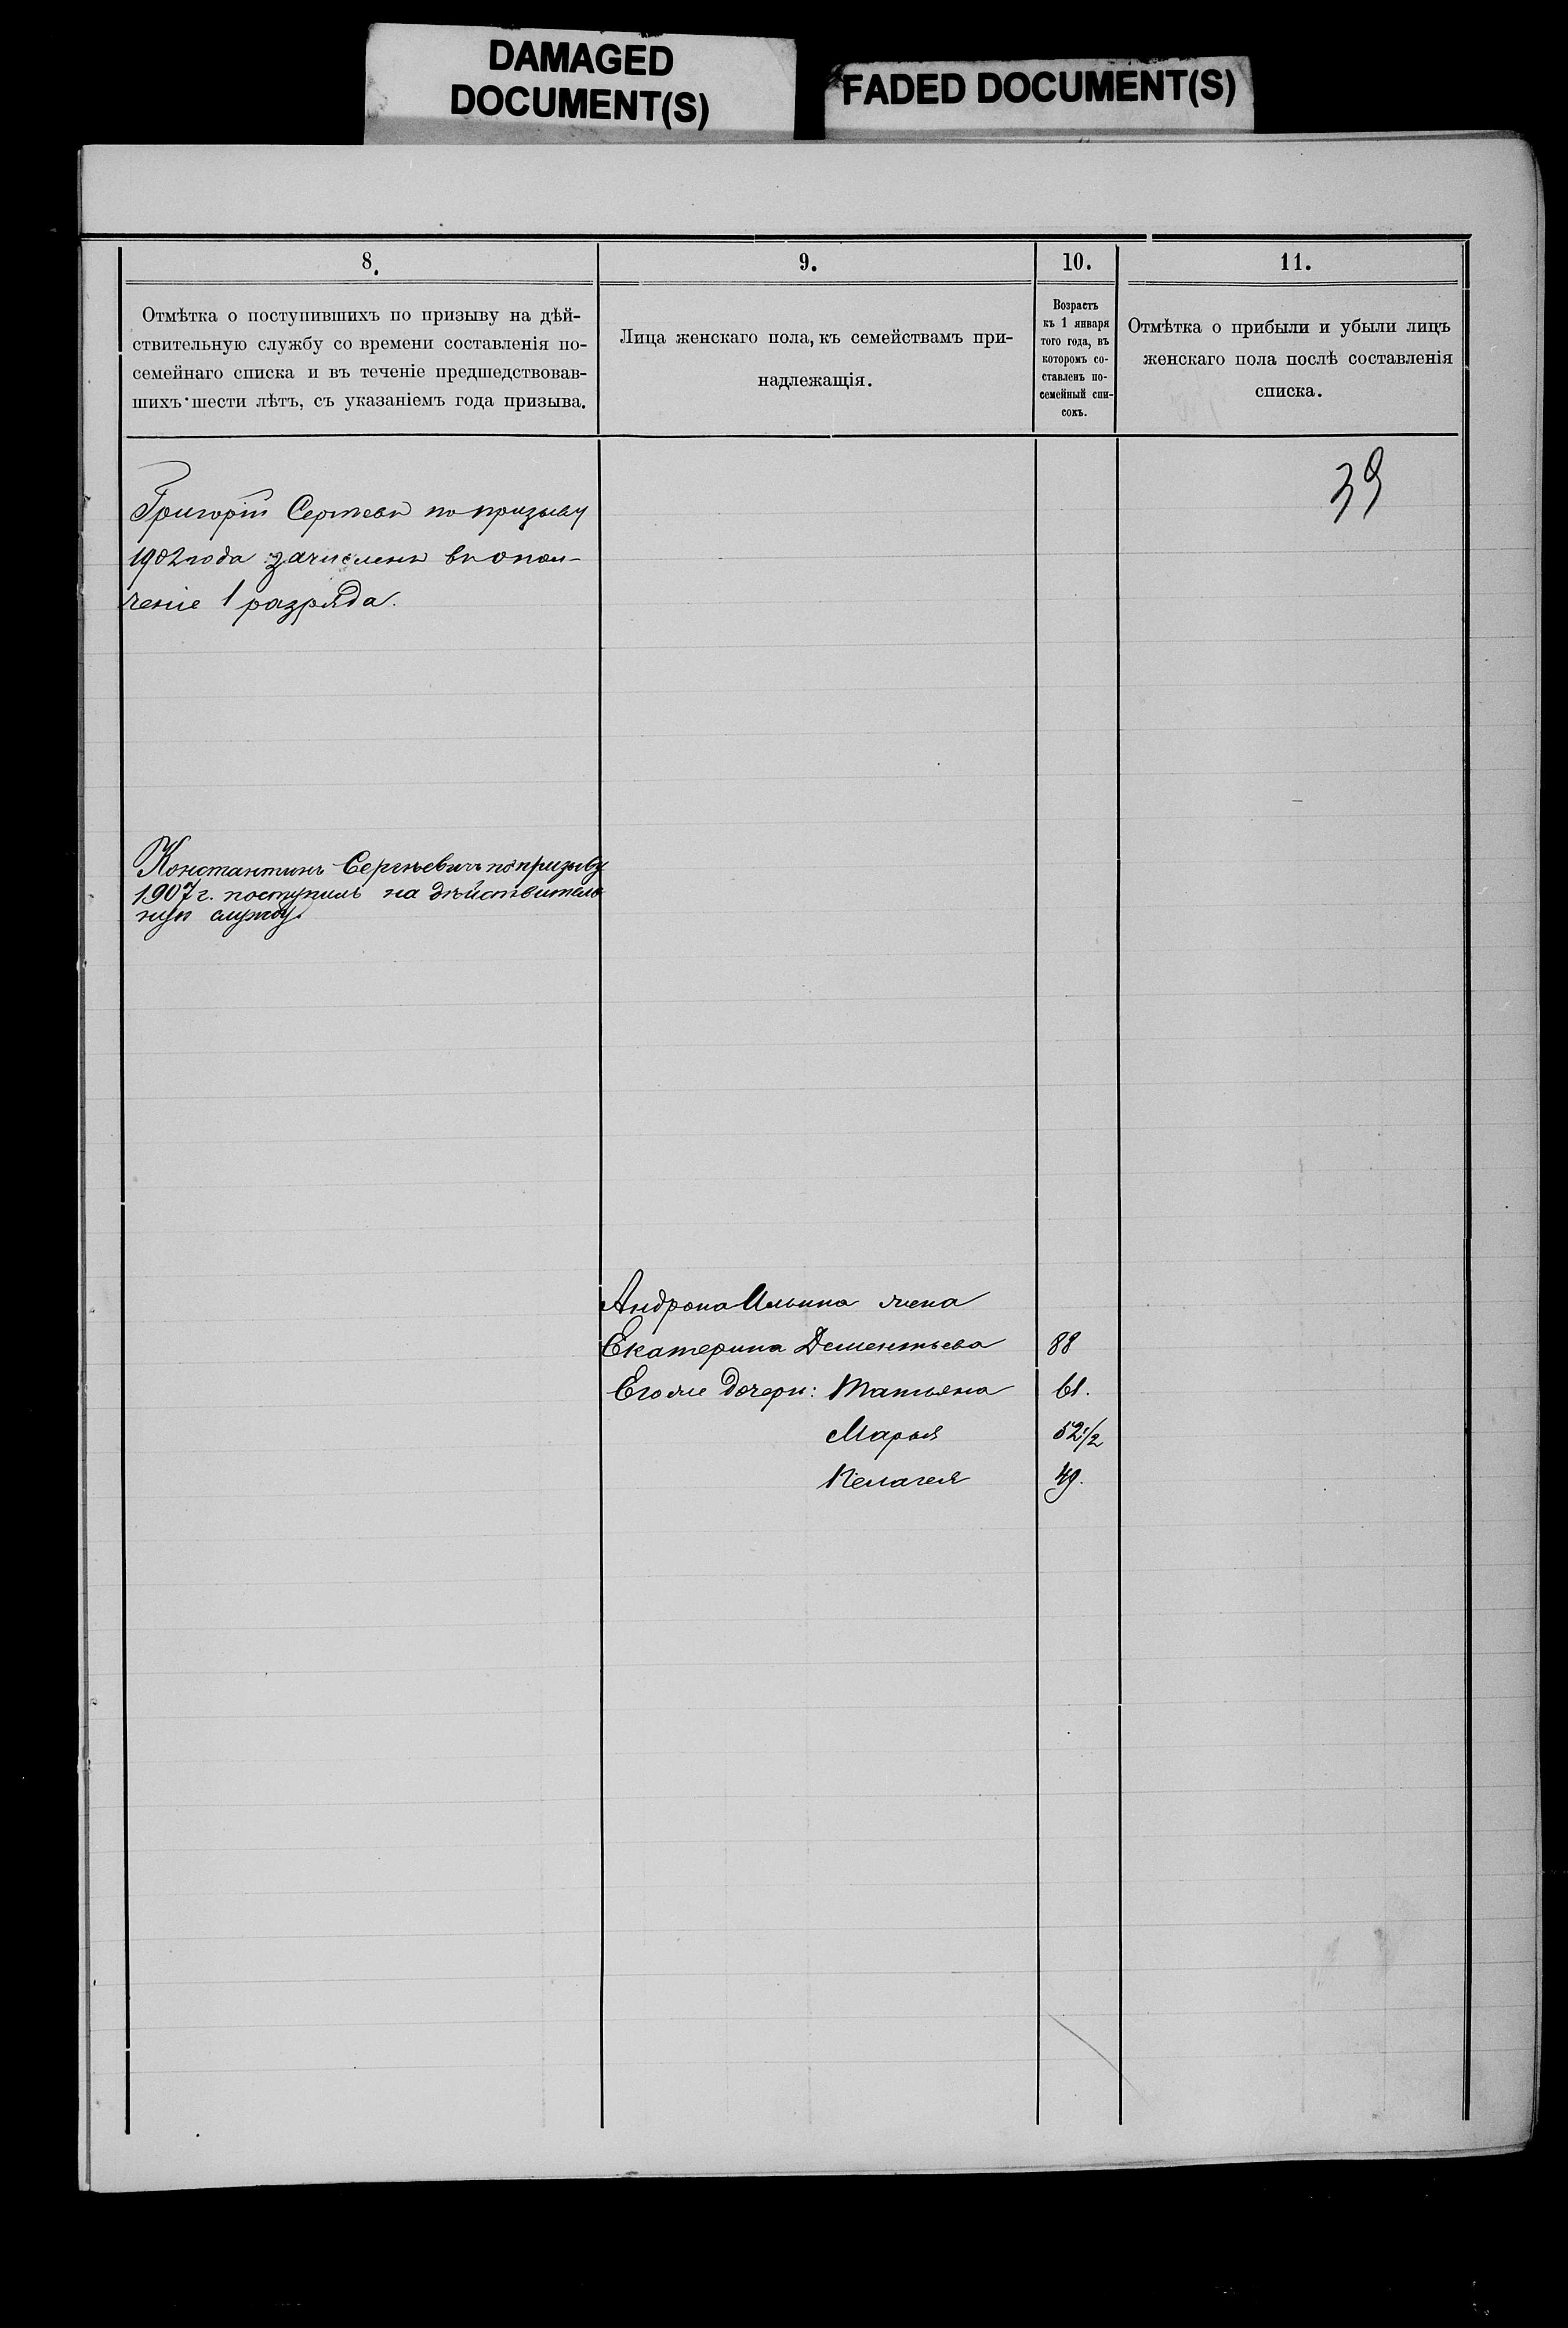 DAMAGED
DOCUMENT(S)
FADED DOCUMENT(S)
8.
9.
10.
11.
Отмѣтка о поступившихъ по призыву на дѣй-
ствительную службу со времени составленія по-
семейнаго списка и въ теченіе предшедствовав-
шихъ шести лѣтъ, съ указаніемъ года призыва.
Лица женскаго пола, къ семействамъ при-
надлежащія.
Возрастъ
къ 1 января
того года, въ
которомъ со-
ставленъ по-
семейный спи-
сокъ.
Отмѣтка о прибыли и убыли лицъ
женскаго пола послѣ составленія
списка.
39
Григорій Сергѣевъ по призыву
1902 года зачисленъ въ опол-
ченіе 1 разряда.
Константинъ Сергѣевичъ по призыву
1907 г. поступилъ на дѣйствитель
ную службу.
Андрона Ильина жена
Екатерина Дементьева 88
Его же дочери: Татьяна 61.
Марья 52 1/2
Пелагея 49.